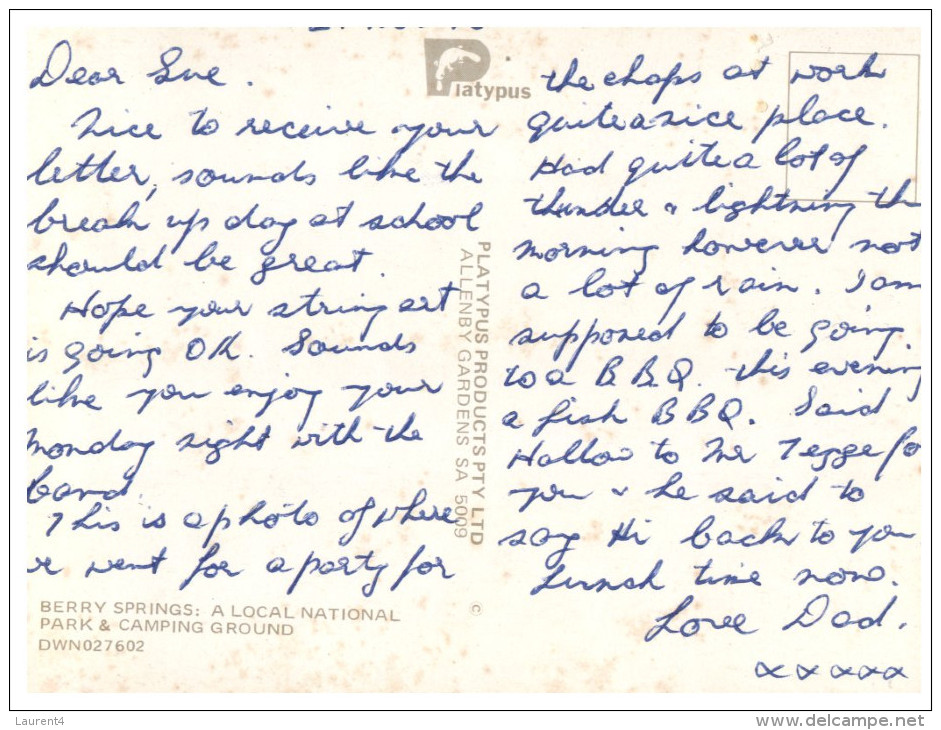 Dear Sue.
Nice to receive your
letter, sounds like the
break up day at school
should be great.
Hope your string art
is going OK. Sounds
like you enjoy your
Monday night with the
band.
This is a photo of where
we went for a party for
BERRY SPRINGS: A LOCAL NATIONAL
PARK & CAMPING GROUND
DWN027602
Platypus
PLATYPUS PRODUCTS PTY LTD
ALLENBY GARDENS SA 5009
©
the chaps at work
quite a nice place.
Had quite a lot of
thunder & lightning th
morning however not
a lot of rain. I am
supposed to be going
to a B.B.Q. this evening
a fish BBQ. Said
Hallow to Mr Tegge fo
you & he said to
say Hi back to you
Lunch time now.
Love Dad.
xxxxx
Laurent4
www.delcampe.net